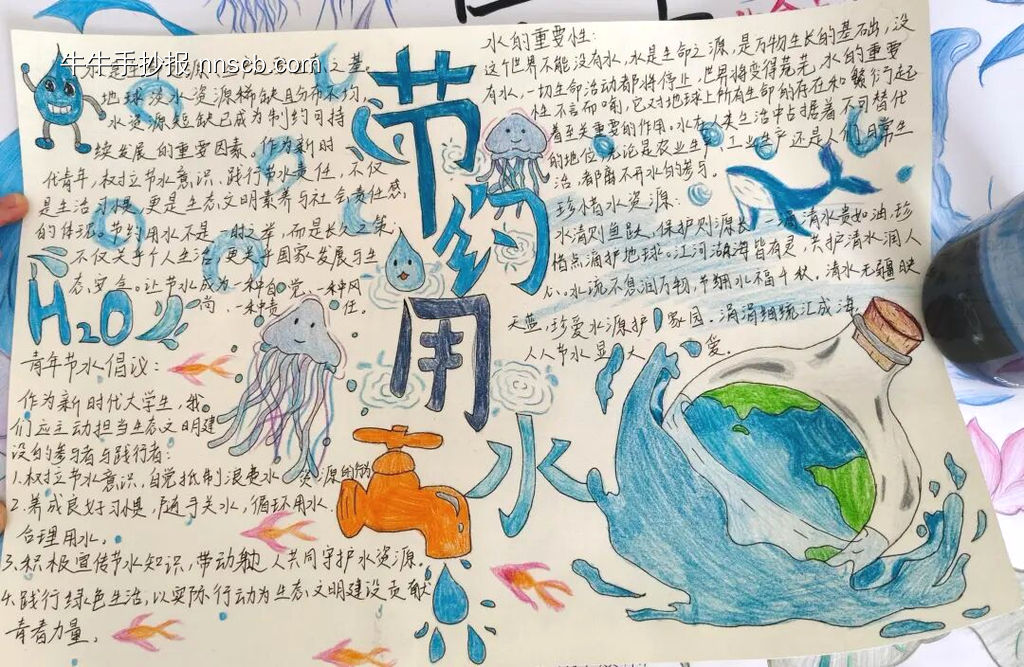 牛牛手抄报 nnscb.com
水是生命之源,
之基。
地球淡水资源稀缺且分布不均,
水资源短缺已成为制约可持
续发展的重要因素。作为新时
代青年,树立节水意识、践行节水责任,不仅
是生活习惯,更是生态文明素养与社会责任感
的体现。节约用水不是一时之举,而是长久之策,
不仅关乎个人生活,更关乎国家发展与生
态安全。让节水成为一种自觉、一种风
尚、一种责任。
H2O
青年节水倡议:
作为新时代大学生,我
们应主动担当生态文明建
设的参与者与践行者:
1.树立节水意识,自觉抵制浪费水资源的行为
2.养成良好习惯,随手关水,循环用水.
合理用水。
3.积极宣传节水知识,带动身边人共同守护水资源。
4.践行绿色生活,以实际行动为生态文明建设贡献
青春力量。
节约用水
水的重要性:
这个世界不能没有水,水是生命之源,是万物生长的基础,没
有水,一切生命活动都将停止,世界将变得荒芜,水的重要
性不言而喻,它对地球上所有生命的存在和繁衍起
着至关重要的作用。水在人类生活中占据着不可替代
的地位,无论是农业生产、工业生产还是人们日常生
活,都离不开水的参与。
珍惜水资源:
水清则鱼跃,保护则源长,一滴清水贵如油,珍
惜点滴护地球。江河湖海皆有灵,共护清水润人
心。水流不息润万物,节约用水福千秋。清水无疆映
天蓝,珍爱水源护家园.涓涓细流汇成海,
人人节水显大爱.